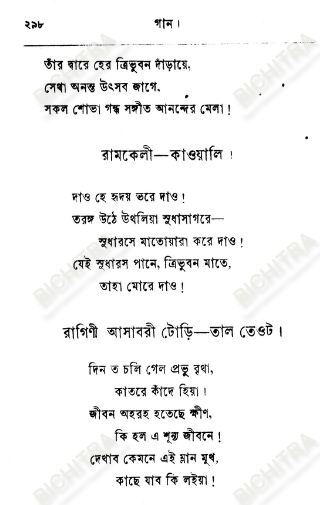 ২৯৮ গান।
তাঁর দ্বারে হের ত্রিভুবন দাঁড়ায়ে,
সেথা অনন্ত উৎসব জাগে,
সকল শোভা গন্ধ সঙ্গীত আনন্দের মেলা!
রামকেলী—কাওয়ালি।
দাও হে হৃদয় ভরে দাও!
তরঙ্গ উঠে উথলিয়া সুধাসাগরে—
সুধারসে মাতোয়ারা করে দাও!
যেই সুধারস পানে, ত্রিভুবন মাতে,
তাহা মোরে দাও!
রাগিণী আসাবরী টোড়ি—তাল তেওট।
দিন ত চলি গেল প্রভু বৃথা,
কাতরে কাঁদে হিয়া।
জীবন অহরহ হতেছে ক্ষীণ,
কি হল এ শূন্য জীবনে!
দেখাব কেমনে এই ম্লান মুখ,
কাছে যাব কি লইয়া!
BICHITRA
BICHITRA
BICHITRA
BICHITRA
BICHITRA
BICHITRA